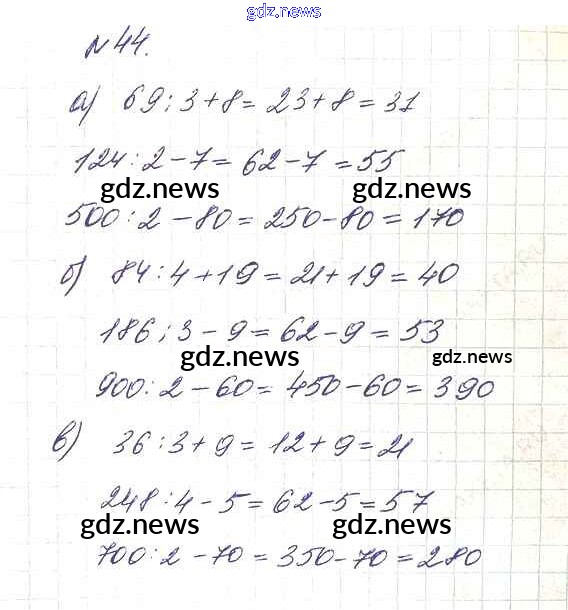 gdz.news
№44.
а) 69:3+8=23+8=31
124:2-7=62-7=55
gdz.news gdz.news
500:2-80=250-80=170
б) 84:4+19=21+19=40
186:3-9=62-9=53
gdz.news gdz.news
900:2-60=450-60=390
в) 36:3+9=12+9=21
248:4-5=62-5=57
gdz.news gdz.news
700:2-70=350-70=280